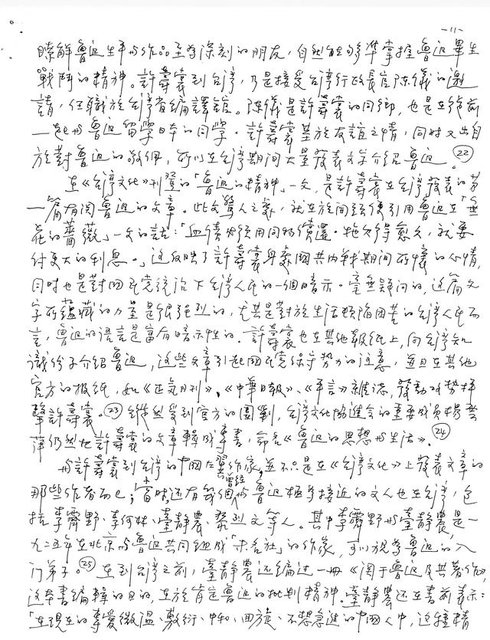 -11-
瞭解魯迅生平與作品至為深刻的朋友,自然能夠準掌握魯迅畢生
戰鬥的精神。許壽裳到台灣,乃是接受台灣行政長官陳儀的邀
請,任職於台灣省編譯館。陳儀是許壽裳的同鄉,也是
一起與魯迅留學日本的同學。許壽裳基於友誼之情,同時又出自
於對魯迅的敬佩,所以在台灣期間大量發表文字介紹魯迅。㉒
在《台灣文化》刊登的「魯迅的精神」一文,是許壽裳在台灣發表的第
一篇有關魯迅的文章。此文驚人之處,就在於開頭便引用魯迅在「無
花的薔薇」一文的話:「血債必須用同物償還。拖欠得愈久,就要
付更大的利息。」這反映了許壽裳
同時也是對國民黨統治下台灣人民的一個暗示。毫無疑問的,這篇文
字所蘊藏的力量是很強烈的,尤其是對於生活陷困苦的台灣人民而
言,魯迅的語言是富有暗示性的。許壽裳也在其他報紙上,向台灣知
識份子介紹魯迅,這些文章引起國民黨保守勢力的注意,並且在其他
官方的報紙,如《正氣月刊》、《中華日報》、《平言》雜誌,發動攻勢抨
擊許壽裳。㉓ 縱然受到官方的圍剿,台灣文化協進會的重要成員楊雲
萍仍然把許壽裳的文章輯成專書,命名《魯迅的思想與生活》。㉔
與許壽裳到台灣的中國左翼作家,並不只是在《台灣文化》上發表文章的
那些作者而已;當時還有幾個與魯迅極為接近的文人也在台灣,包
括李霽野、李何林、臺靜農、黎烈文等人。其中李霽野與臺靜農是一
九二五年在北京與魯迅共同組成「未名社」的作家,可以說是魯迅的入
門弟子。㉕ 在到台灣之前,臺靜農還編過一冊《關于魯迅及其著作》,
這本書編輯的目的,在於肯定魯迅的批判精神。臺靜農還在書前表示:
「在現在的專愛微溫、敷衍、中和、回旋、不想急進的中國人中,這種精